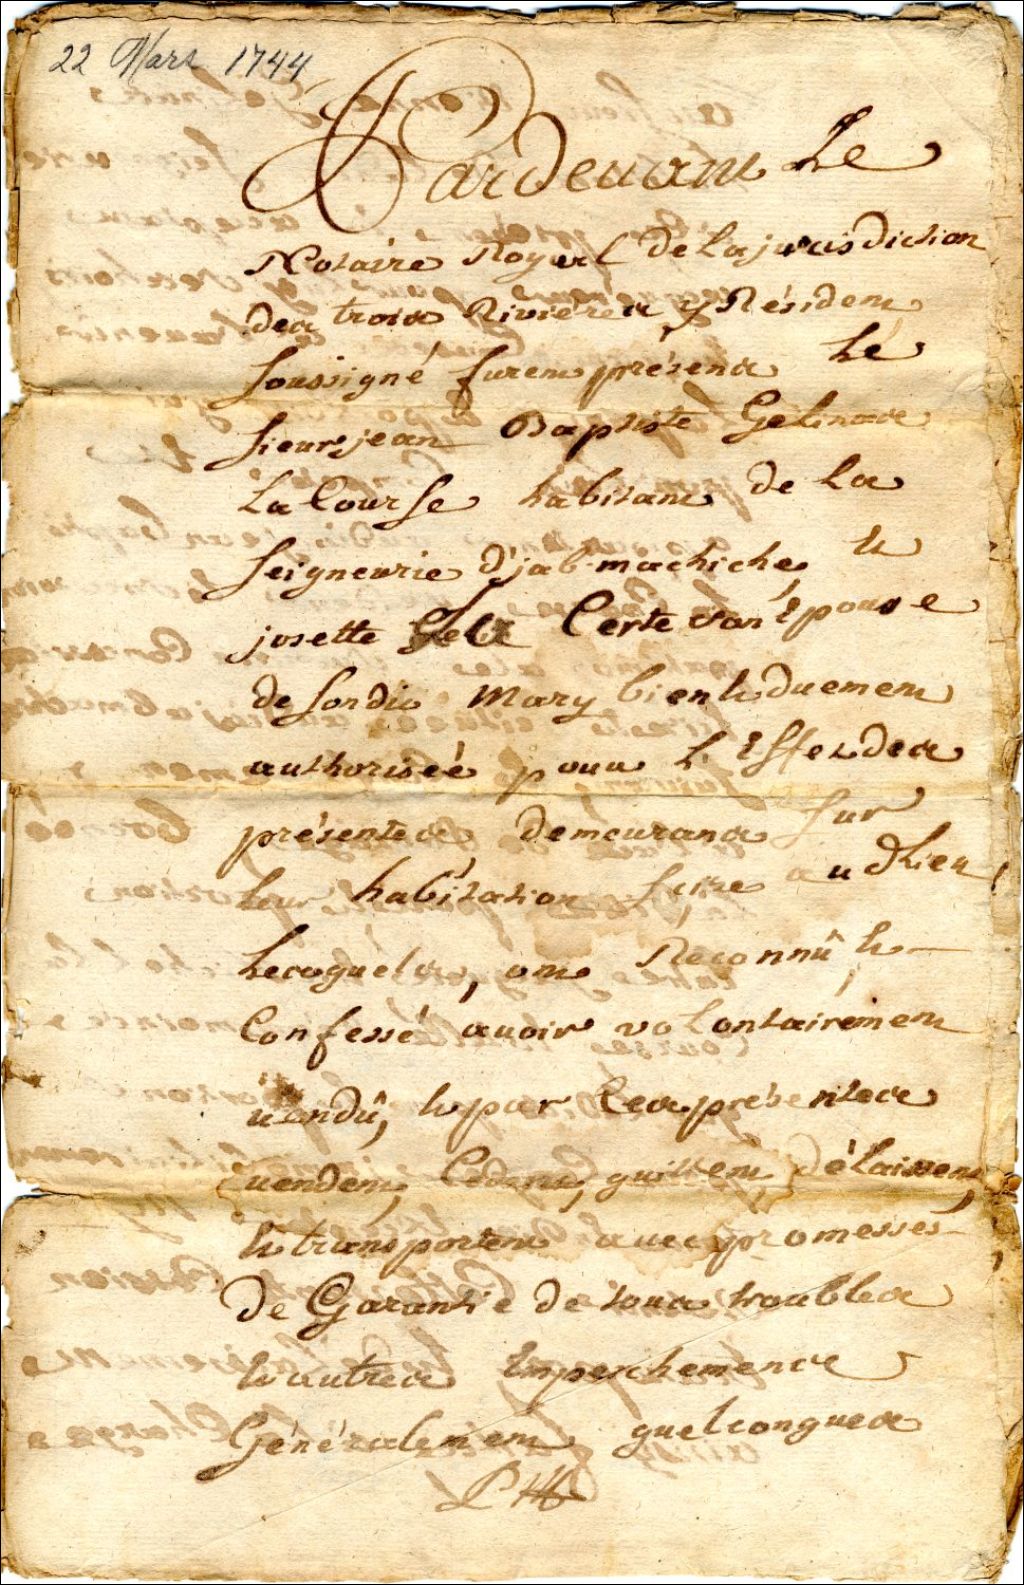 22 Mars 1744
Pardeuant Le
Notaire Royal De la jurisdiction
des trois Rivières y Résident
soussigné furent présents Le
sieur jean Baptiste Gelinas
La Course habitant de La
seigneurie d'jab-machiche et
josette Certe son Épouse
de son dit Mary bien et duement
authoriséé pour L'Effet des
présentes demeurants sur
Leur habitation size audt Lieu
Lecoquels, ont Reconnû et
Confessé auoir volontairément
uendû, et par Ces présentes
uendent, Cedent, quittent, délaissent,
et transportent auec promesses
de Garantie de tous troubles
et autres Empeschements
Généralement quelconques